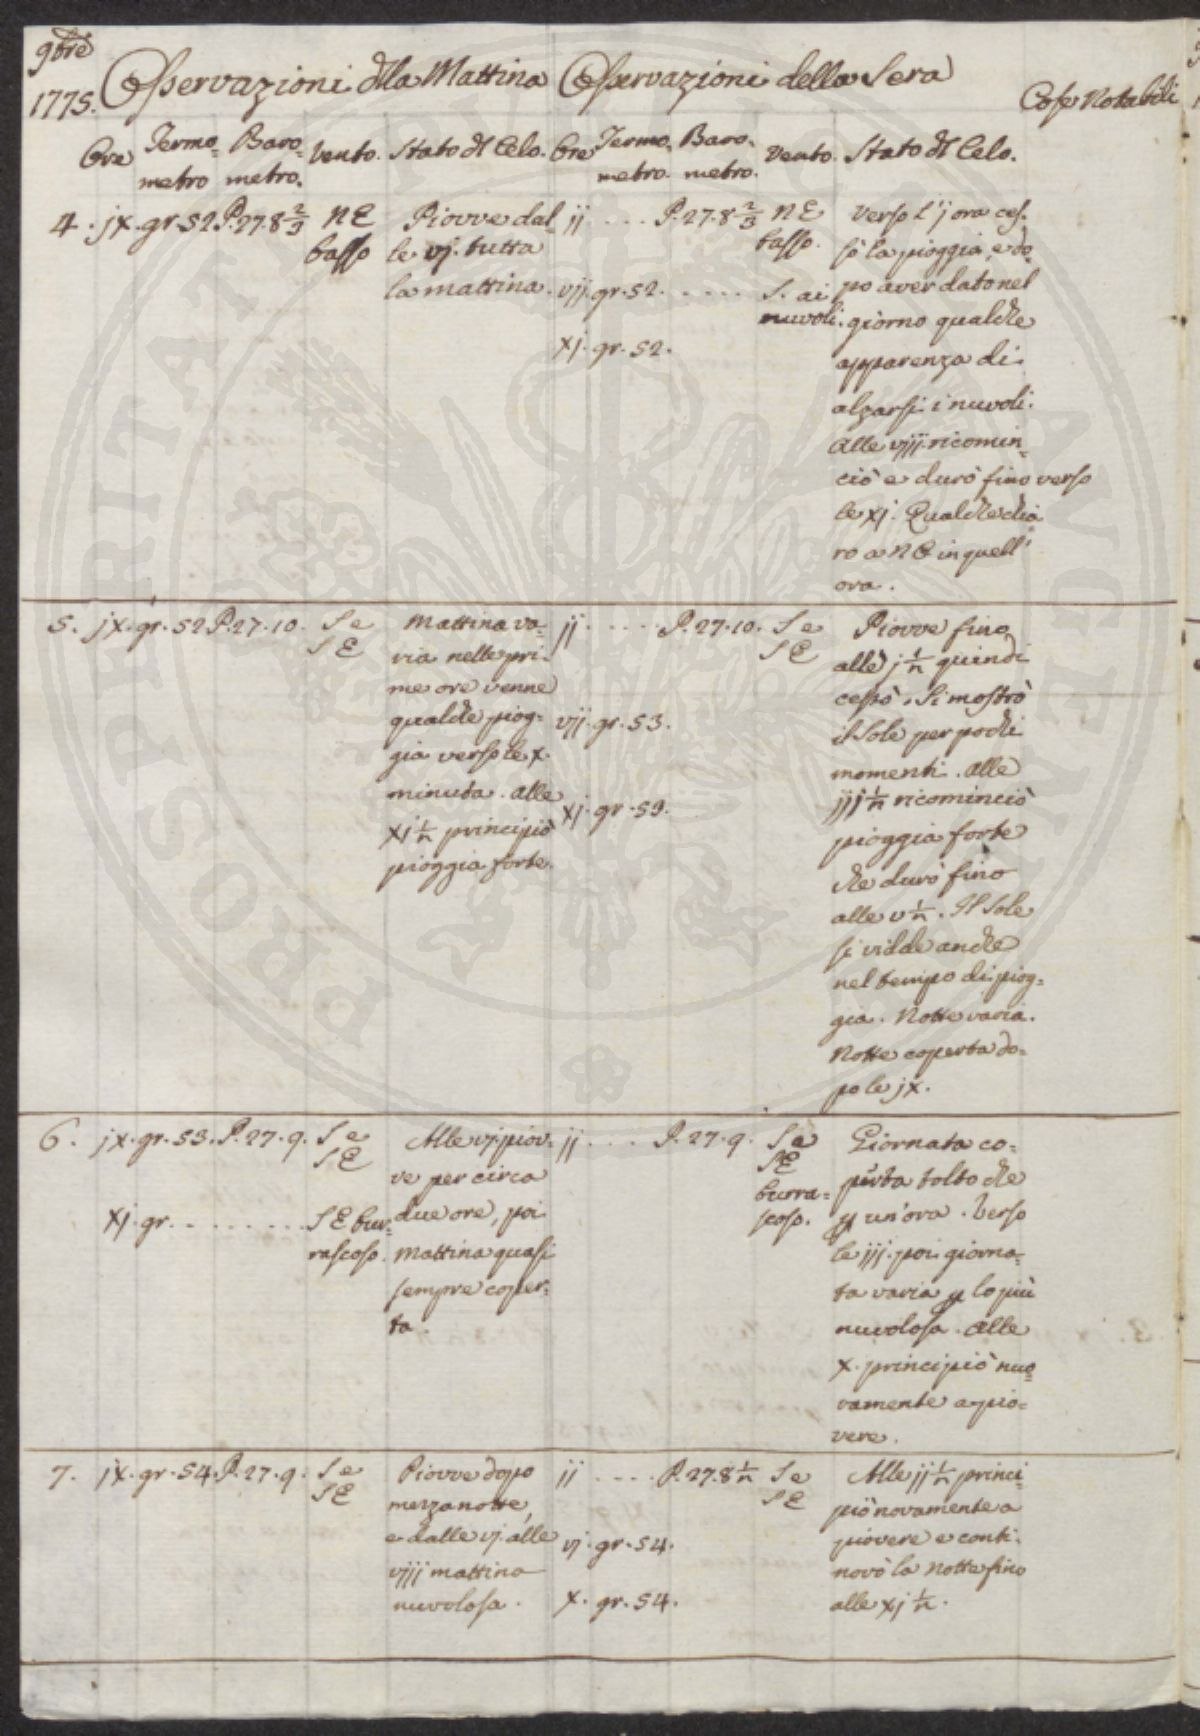 9bre
1775. Osservazioni dlla Mattina Osservazioni della Sera
Cose Notabili
Ore Termo= Baro= Vento. Stato dl Celo. Ore Termo= Baro= Vento. Stato dl Celo.
metro metro. metro. metro.
4. jx. gr. 52 P. 27. 8 2/3 NE
basso
Piovve dal=
le vj. tutta
la mattina.
ij .... P. 27. 8 2/3 NE
basso.
vij. gr. 52. ..... S. ai
nuvoli.
xj. gr. 52.
Verso l'ij ora ces=
sò la pioggia, e do=
po aver dato nel
giorno qualche
apparenza di
alzarsi i nuvoli.
Alle viij. ricomin=
ciò e durò fino verso
le xj. Qualche chia
ro a NE in quell'
ora.
5. jx. gr. 52 P. 27. 10. S e
SE
Mattina va=
ria nelle pri=
me ore venne
qualche piog=
gia verso le x.
minuta. Alle
xj 1/2 principiò
pioggia forte.
ij ..... P. 27. 10. S e
SE
vij. gr. 53.
xj. gr. 53.
Piovve fino
alle j 1/2 quindi
cessò. Si mostrò
il Sole per pochi
momenti. Alle
iij 1/2 ricominciò
pioggia forte
che durò fino
alle v 1/2. Il Sole
si vidde anche
nel tempo di piog=
gia. Notte varia.
Notte coperta do=
po le jx.
6. jx. gr. 53. P. 27. 9. S e
SE
xj. gr. ........ SE bur=
rascoso.
Alle vj. piov=
ve per circa
due ore, poi
Mattina quasi
sempre coper=
ta.
ij .... P. 27. 9. S e
SE
burra=
scoso.
Giornata co=
perta tolto che
p un'ora. Verso
le iij. poi giorna=
ta varia p lo più
nuvolosa. Alle
x. principiò nuo=
vamente a pio=
vere.
7. jx. gr. 54. P. 27. 9. S e
SE
Piovve dopo
mezzanotte,
e dalle vj. alle
viij mattina
nuvolosa.
ij .... P. 27. 8 1/2 S e
SE
vj. gr. 54.
x. gr. 54.
Alle ij 1/2 princi=
piò novamente a
piovere e conti=
novò la Notte fino
alle xj 1/2.
PROSPERITAT